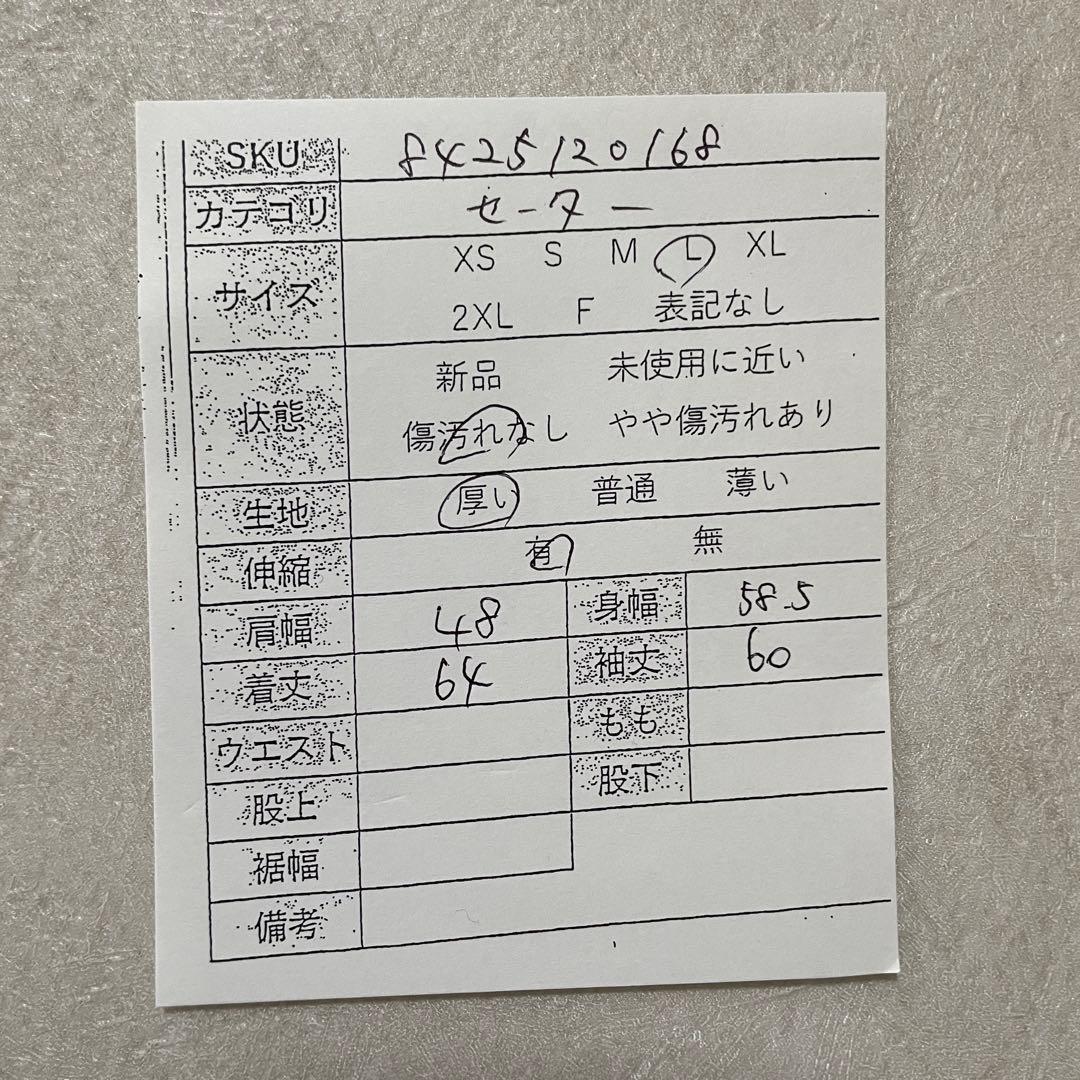 SKU 8425120168
カテゴリ セーター
サイズ XS S M L XL
2XL F 表記なし
状態 新品 未使用に近い
傷汚れなし やや傷汚れあり
生地 厚い 普通 薄い
伸縮 有 無
肩幅 48 身幅 58.5
着丈 64 袖丈 60
ウエスト もも
股上 股下
裾幅
備考